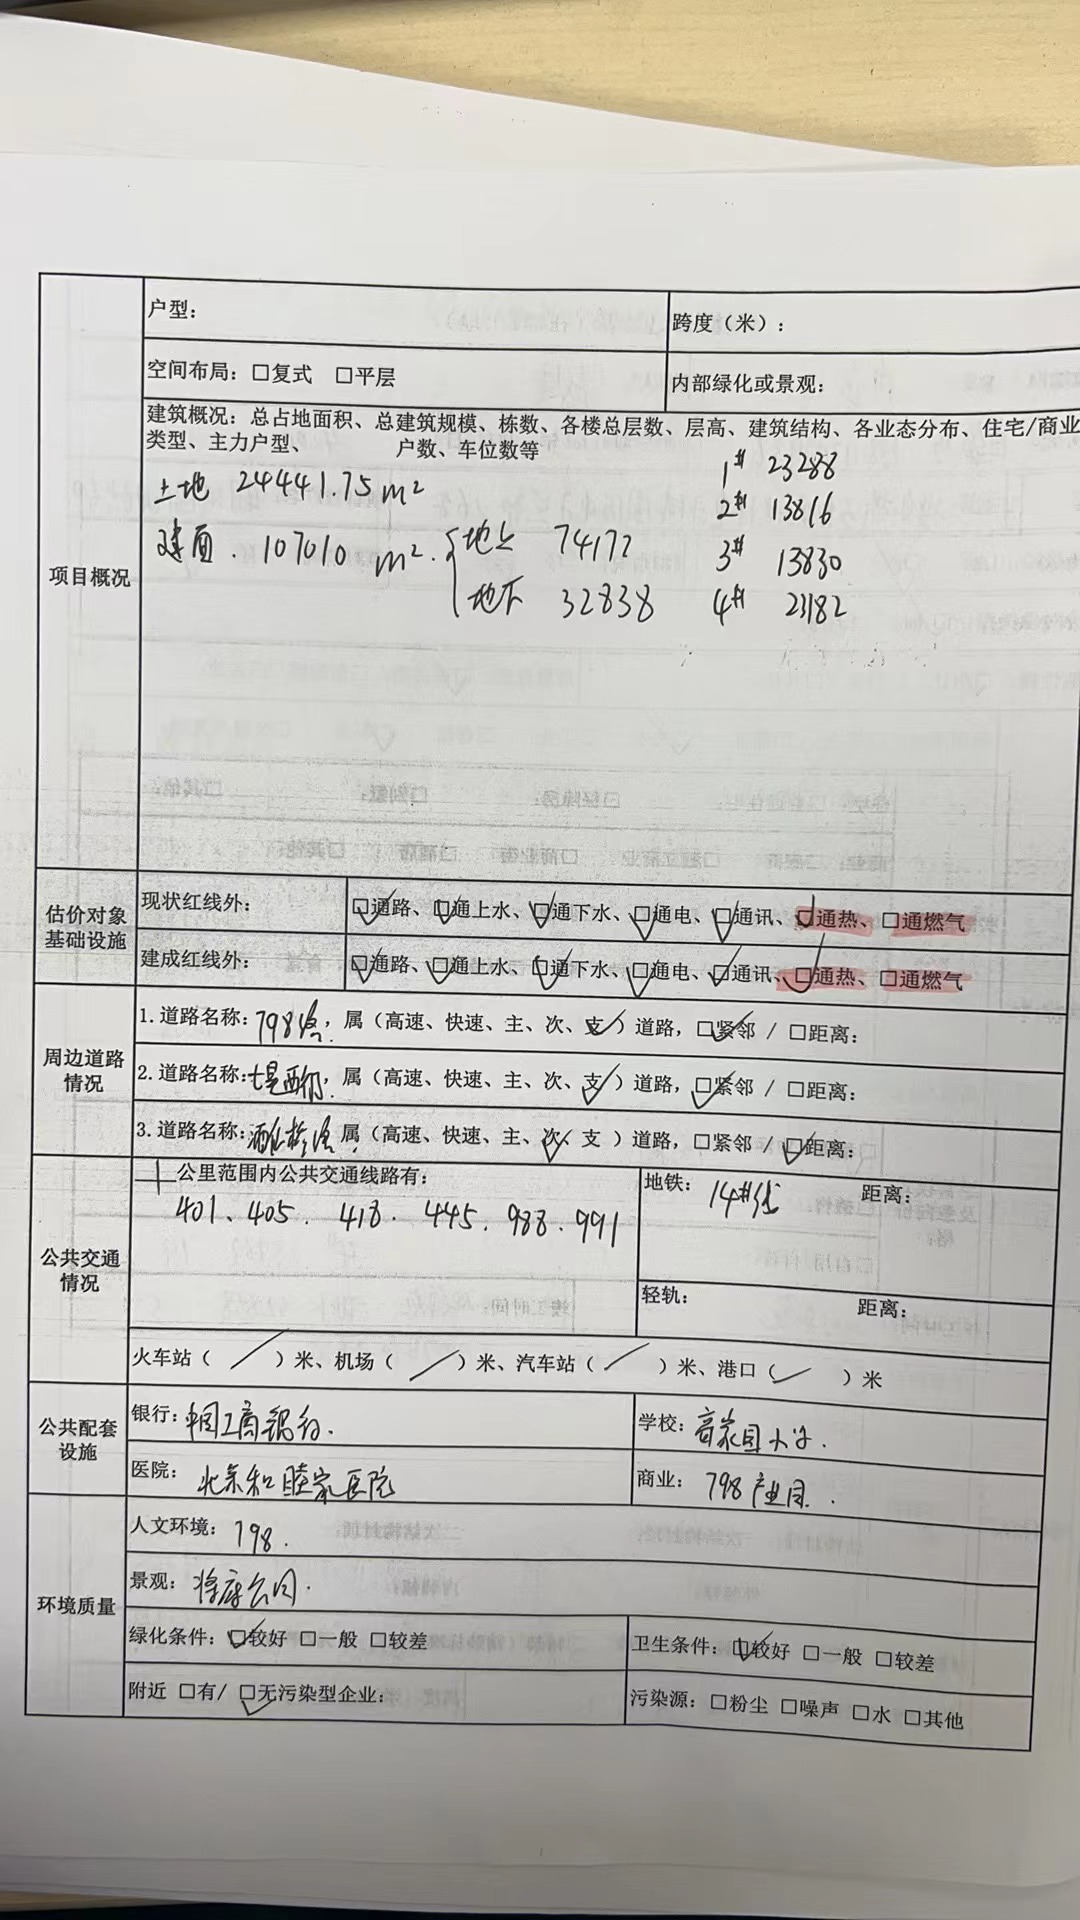 户型：
跨度（米）：
空间布局：□复式 □平层
内部绿化或景观：
建筑概况：总占地面积、总建筑规模、栋数、各楼总层数、层高、建筑结构、各业态分布、住宅/商业
类型、主力户型、 户数、车位数等
土地 24441.75m²
建面．107010 m². { 地上 74172
地下 32838
1# 23288
2# 13816
3# 13830
4# 23182
项目概况
估价对象
基础设施
现状红线外：
☑通路、☑通上水、☑通下水、☑通电、☑通讯、☑通热、□通燃气
建成红线外：
☑通路、☑通上水、☑通下水、☑通电、☑通讯、☑通热、□通燃气
周边道路
情况
1.道路名称：798路，属（高速、快速、主、次、支✓）道路，☑紧邻 / □距离：
2.道路名称：，属（高速、快速、主、次、支✓）道路，☑紧邻 / □距离：
3.道路名称：酒仙桥路 属（高速、快速、主、次✓、支 ）道路，□紧邻 / ☑距离：
公共交通
情况
公里范围内公共交通线路有：
401、405．418．445．988．991
地铁：14#线 距离：
轻轨： 距离：
火车站（ / ）米、机场（ / ）米、汽车站（ / ）米、港口（ / ）米
公共配套
设施
银行：中国工商银行．
学校：小学．
医院：北京和睦家医院
商业：798产业园．
环境质量
人文环境：798．
景观：将府公园．
绿化条件：☑较好 □一般 □较差
卫生条件：☑较好 □一般 □较差
附近 □有/ ☑无污染型企业：
污染源：□粉尘 □噪声 □水 □其他